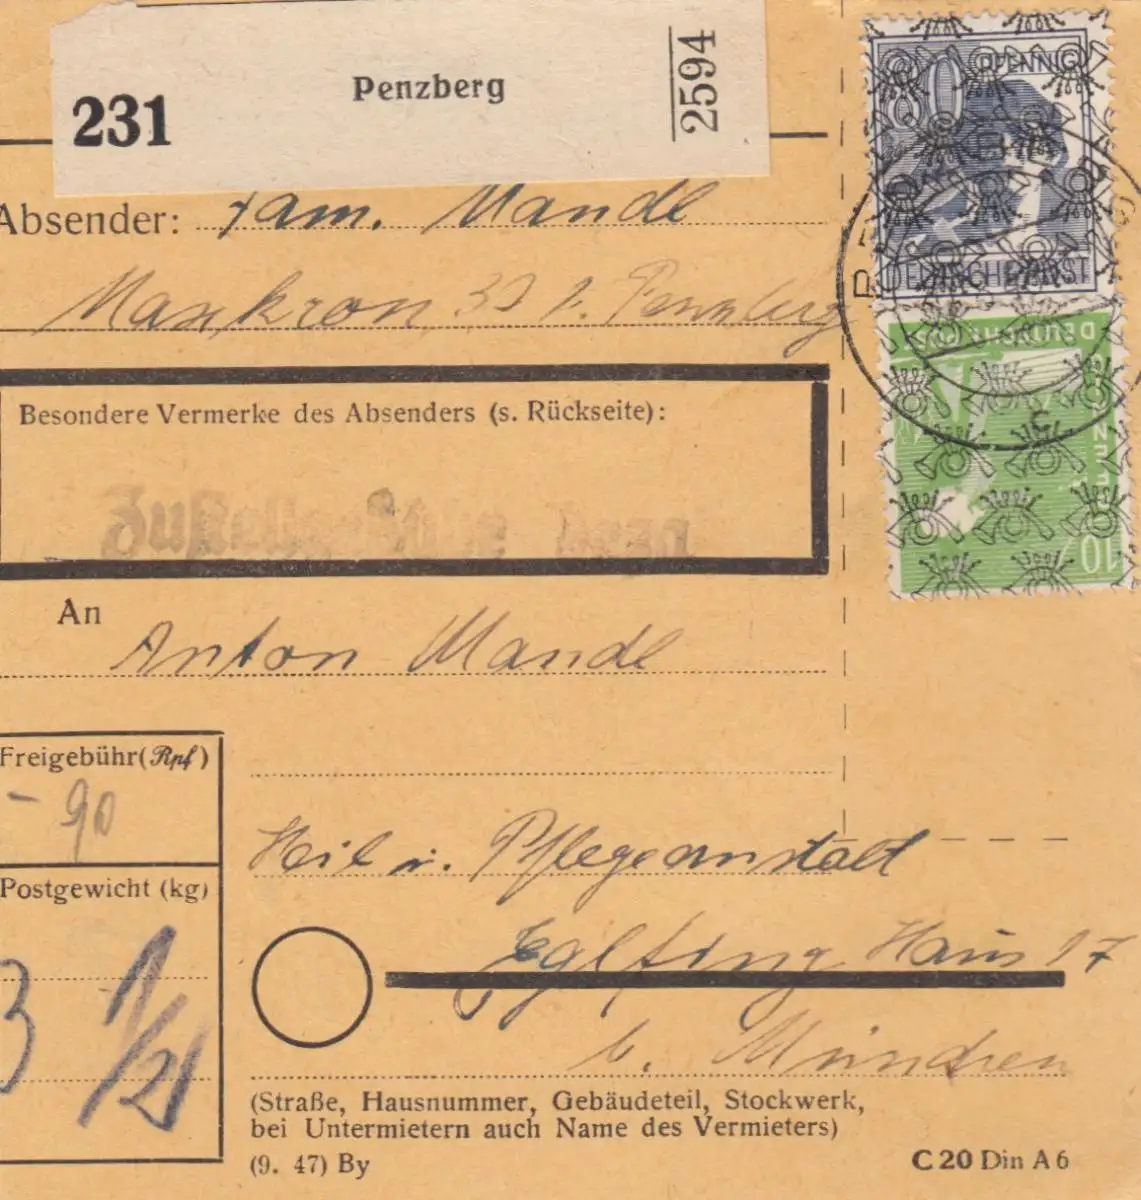 231 Penzberg 2594
80 PFENNIG
DEUTSCHE POST
Absender: Fam. Mandl
Maxkron 33 b. Penzberg
Besondere Vermerke des Absenders (s. Rückseite):
An
Anton Mandl
Freigebühr (Rpf)
– 90
Heil u. Pflegeanstalt
Postgewicht (kg)
3 1/2
Eglfing Haus 17
b. München
(Straße, Hausnummer, Gebäudeteil, Stockwerk,
bei Untermietern auch Name des Vermieters)
(9. 47) By
C 20 Din A 6
10